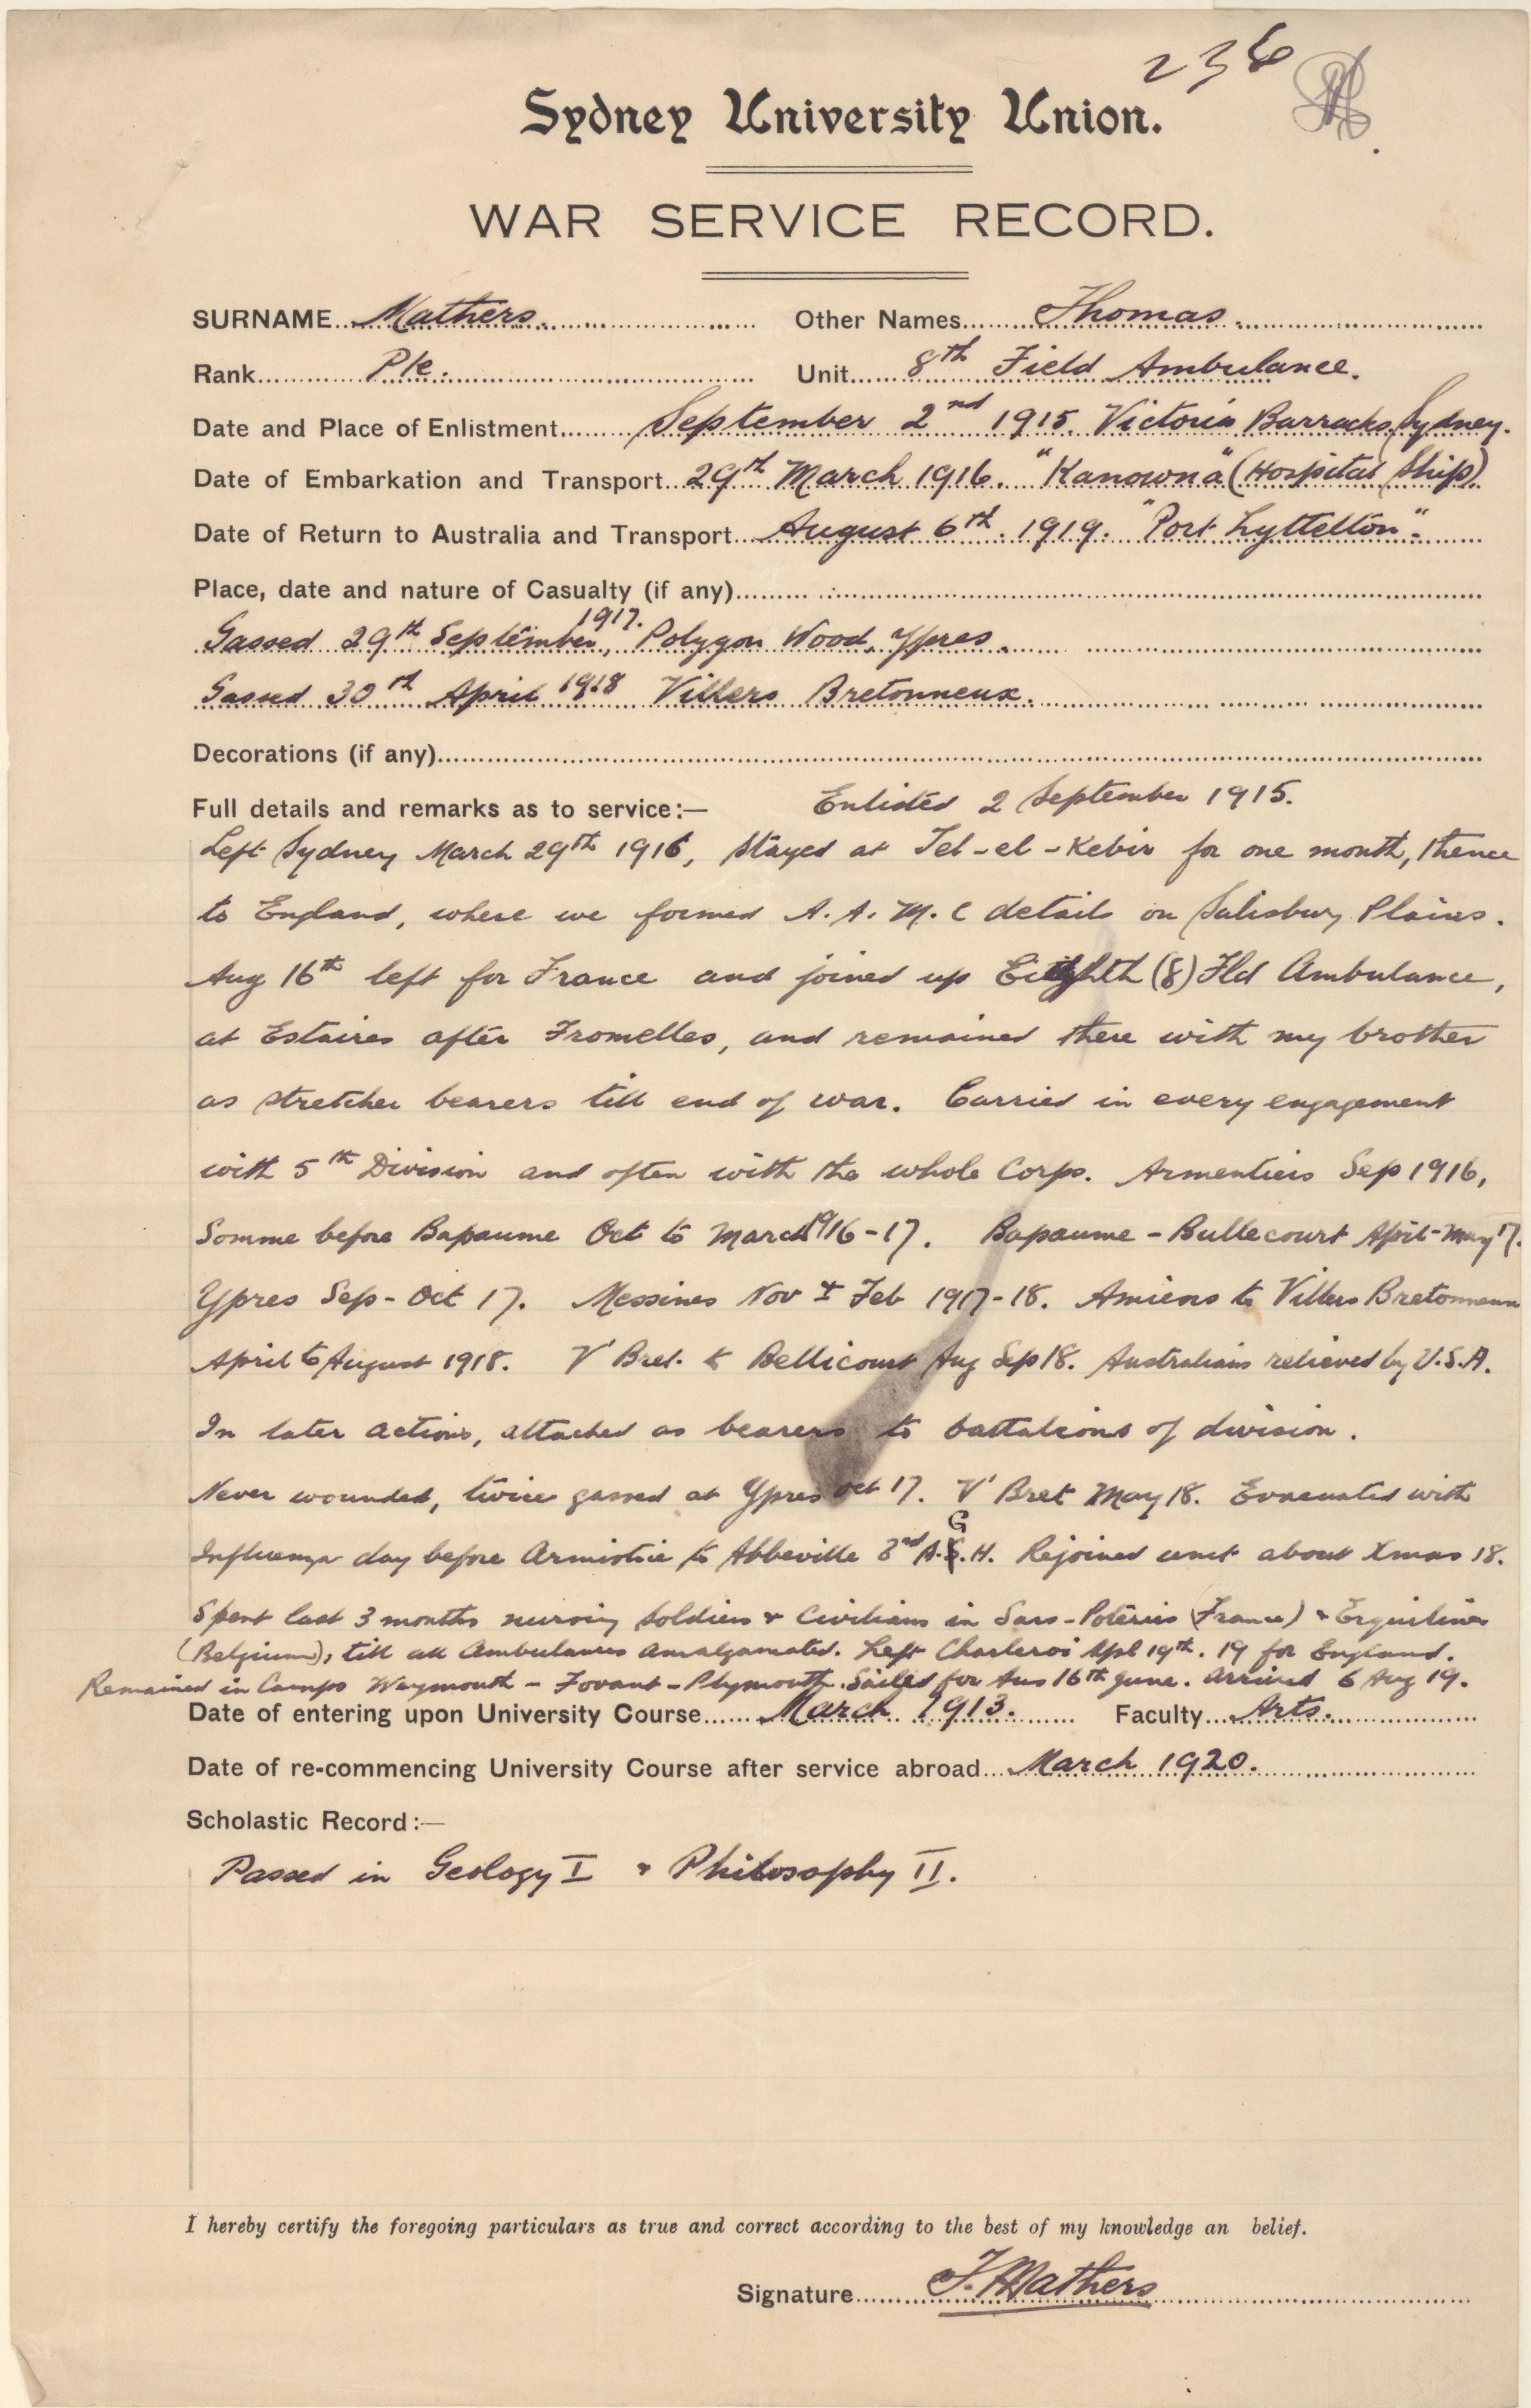 236
Sydney University Union.
WAR SERVICE RECORD.
SURNAME Mathers. Other Names Thomas.
Rank Pte. Unit 8th Field Ambulance.
Date and Place of Enlistment September 2nd 1915. Victoria Barracks, Sydney.
Date of Embarkation and Transport 29th March 1916. "Kanowna" (Hospital Ship)
Date of Return to Australia and Transport August 6th. 1919. "Port Lyttelton".
Place, date and nature of Casualty (if any)
Gassed 29th September, 1917. Polygon Wood, Ypres.
Gassed 30th April 1918 Villers Bretonneux.
Decorations (if any)
Full details and remarks as to service:— Enlisted 2 September 1915.
Left Sydney March 29th 1916, stayed at Tel-el-Kebir for one month, thence
to England, where we formed A.A.M.C details on Salisbury Plains.
Aug 16th left for France and joined up Eighth (8) Fld Ambulance,
at Estaires after Fromelles, and remained there with my brother
as stretcher bearers till end of war. Carried in every engagement
with 5th Division and often with the whole Corps. Armentiers Sep 1916,
Somme before Bapaume Oct to March 1916-17. Bapaume - Bullecourt April-May 17.
Ypres Sep - Oct 17. Messines Nov & Feb 1917-18. Amiens to Villers Bretonneux
April to August 1918. V' Bret. & Bellicourt Aug Sep 18. Australians relieved by U.S.A.
In later actions, attached as bearers to battalions of division.
Never wounded, twice gassed at Ypres Oct 17. V' Bret May 18. Evacuated with
Influenza day before Armistice to Abbeville 3rd A.G.H. Rejoined unit about Xmas 18.
Spent last 3 months nursing soldiers & Civilians in Sars-Poteries (France) & Erquelines
(Belgium), till all Ambulances amalgamated. Left Charleroi Apl 19th. 19 for England.
Remained in Camps Weymouth - Fovant - Plymouth. Sailed for Aus 16th June. Arrived 6 Aug 19.
Date of entering upon University Course March 1913. Faculty Arts.
Date of re-commencing University Course after service abroad March 1920.
Scholastic Record:—
Passed in Geology I & Philosophy II.
I hereby certify the foregoing particulars as true and correct according to the best of my knowledge an belief.
Signature T. Mathers